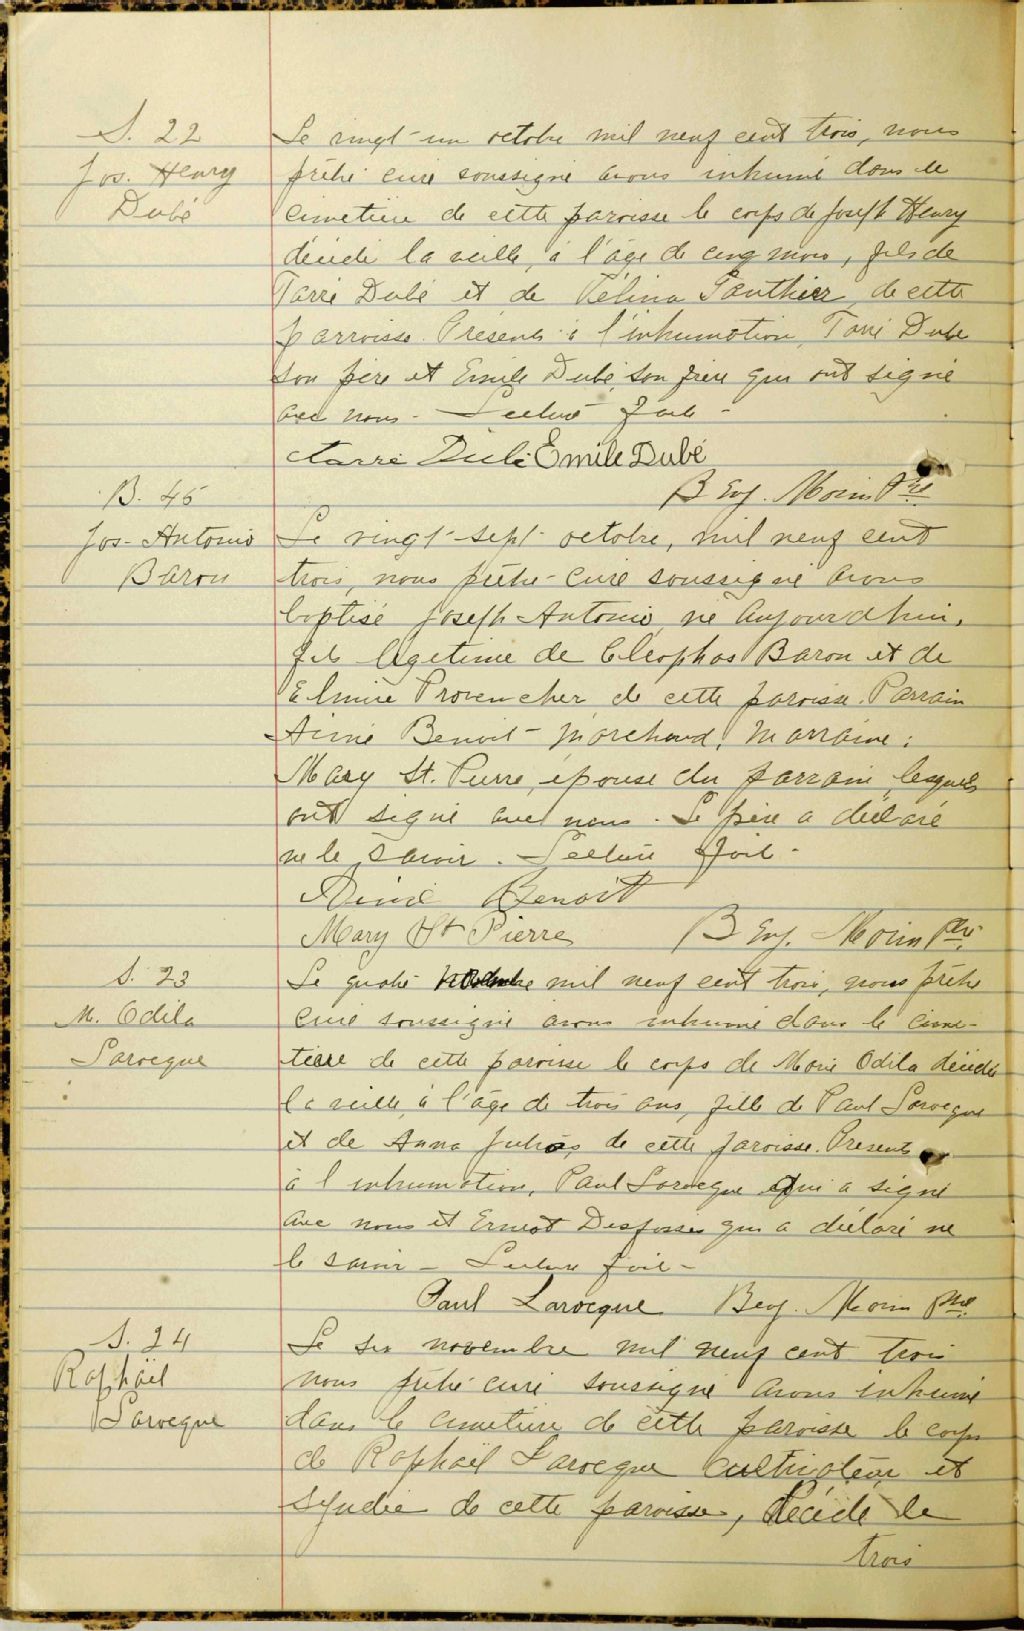 S. 22
Jos. Henry
Dubé
Le vingt-un octobre mil neuf cent trois, nous
prêtre curé soussigné avons inhumé dans le
cimetière de cette paroisse le corps de Joseph Henry
décédé la veille, à l'âge de cinq mois, fils de
Tarré Dubé et de Gauthier, de cette
parroisse. Présents à l'inhumation, Tarré Dubé
son père et Emile Dubé, son frère qui ont signé
avec nous - Lecture faite -
Tarré Dubé Emile Dubé
B Eug. Morin Ptre
B. 45
Jos- Antonio
Baron
Le vingt-sept octobre, mil neuf cent
trois, nous prêtre-curé soussigné avons
baptisé Joseph Antonio, né aujourdhui,
fils légetime de Cléophas Baron et de
Elmire Provencher de cette paroisse. Parrain
Aimé Benoit - marchand, Marraine:
Mary St. Pierre, épouse du parrain, lesquels
ont signé avec nous. Le père a déclaré
ne le savoir. Lecture faite -
Aimé Benoit
Mary St Pierre B Eug. Morin Ptre
S. 23
M. Odila
Larocque
Le quatre novembre mil neuf cent trois, nous prêtre
curé soussigné avons inhumé dans le cime-
tière de cette paroisse le corps de Marie Odila décédée
la veille, à l'âge de trois ans, fille de Paul Larocque
et de Anna de cette paroisse. Présents
à l'inhumation, Paul Larocque qui a signé
avec nous et Ernest Desfossés qui a déclaré ne
le savoir - Lecture faite -
Paul Larocque B Eug. Morin Ptre
S. 24
Raphaël
Larocque
Le six novembre mil neuf cent trois
nous prêtre curé soussigné avons inhumé
dans le cimetière de cette paroisse le corps
de Raphaël Larocque cultivateur et
syndic de cette paroisse, décédé le
trois